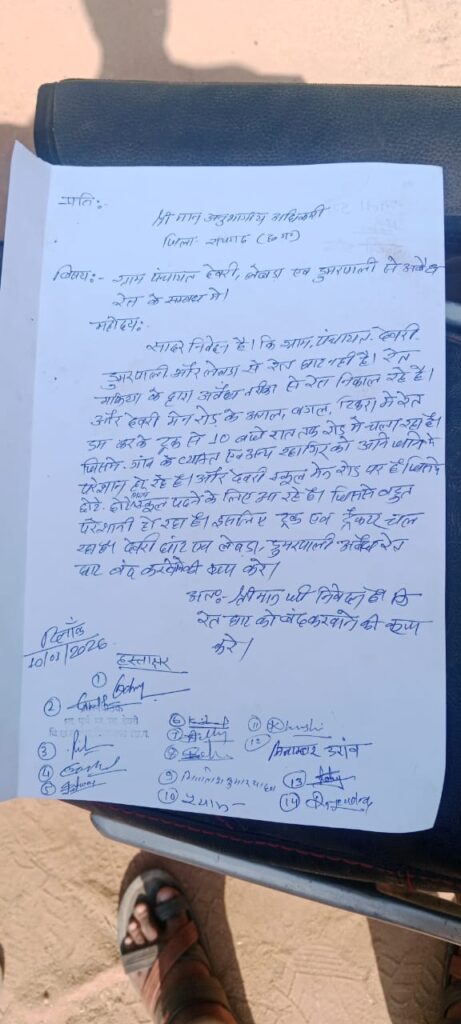 प्रति:-
श्री मान अनुभागीय अधिकारी
जिला- रायगढ़ (छ.ग.)
विषय:- ग्राम पंचायत देवरी, लेबड़ा एवं डुमरपाली से अवैध
रेत के सम्बंध में।
महोदय:-
सादर निवेदन है। कि ग्राम, पंचायत- देवरी
डुमरपाली और लेबड़ा से रेत घाट नहीं है। रेत
माफिया के द्वारा अवैध तरीका से रेत निकाल रहे है।
और देवरी मेन रोड के अगल, बगल, टिकरा में रेत
डम करके ट्रक से 10 बजे रात तक रोड में चला रहा है।
जिससे गांव के व्यक्ति एवं अन्य राहागिर को आने जाने में
परेशान हो रहे है। और देवरी स्कूल मेन रोड पर है। जिससे
छोटे-छोटे बच्चे स्कूल पढ़ने के लिए आ रहे है। जिससे बहुत
परेशानी हो रहा है। इसलिए ट्रक एवं ट्रैक्टर चल
रहा है। देवरी घाट एवं लेबड़ा, डुमरपाली अवैध रेत
घाट बंद करवाने की कृपा करे।
अतः- श्री मान जी निवेदन है। कि
रेत घाट को बंद करवाने की कृपा
करे।
दिनाँक
10/01/2026
हस्ताक्षर
①
②
③
④
⑤
⑥
⑦
⑧
⑨ कुमार यादव
⑩ श्याम
⑪ Khushi
⑫ उरांव
⑬
⑭